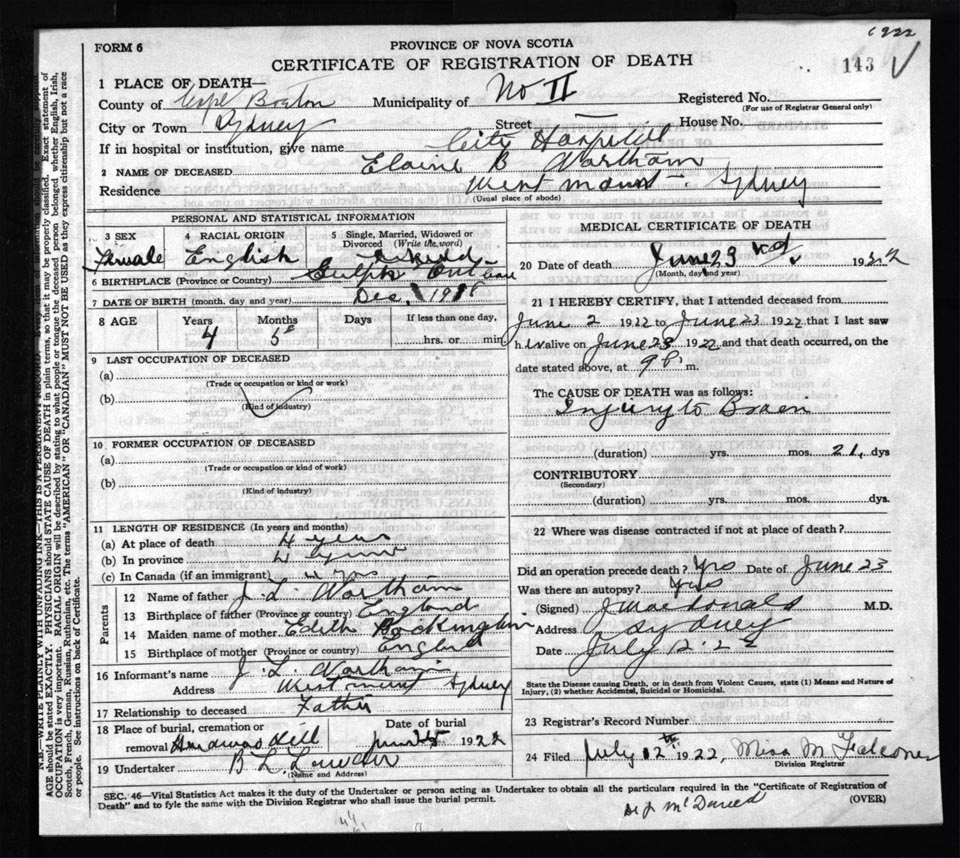 1922
FORM 6
PROVINCE OF NOVA SCOTIA
CERTIFICATE OF REGISTRATION OF DEATH
143
1 PLACE OF DEATH—
County of Cape Breton Municipality of No II Registered No.
(For use of Registrar General only)
City or Town Sydney Street — House No.
If in hospital or institution, give name City Hospital
2 NAME OF DECEASED Elaine B Wortham
Residence Westmount - Sydney
(Usual place of abode)
PERSONAL AND STATISTICAL INFORMATION
3 SEX 4 RACIAL ORIGIN 5 Single, Married, Widowed or Divorced (Write the word)
Female English
6 BIRTHPLACE (Province or Country) Guelph Ont
7 DATE OF BIRTH (month, day and year) Dec.
8 AGE Years Months Days If less than one day,
4 5 hrs. or min.
9 LAST OCCUPATION OF DECEASED
(a)
(Trade or occupation or kind or work)
(b)
(Kind of industry)
10 FORMER OCCUPATION OF DECEASED
(a)
(Trade or occupation or kind or work)
(b)
(Kind of industry)
11 LENGTH OF RESIDENCE (In years and months)
(a) At place of death 4 years
(b) In province 4 years
(c) In Canada (if an immigrant) 4 yrs
Parents
12 Name of father J. L. Wortham
13 Birthplace of father (Province or country) England
14 Maiden name of mother Edith
15 Birthplace of mother (Province or country) England
16 Informant's name J. L. Wortham
Address Westmount Sydney
17 Relationship to deceased Father
18 Place of burial, cremation or Date of burial
removal Hardwood Hill June 25 1922
19 Undertaker B. L.
(Name and Address)
MEDICAL CERTIFICATE OF DEATH
20 Date of death June 23 1922
(Month, day and year)
21 I HEREBY CERTIFY, that I attended deceased from
June 2 1922 to June 23 1922 that I last saw
h er alive on June 23 1922 and that death occurred, on the
date stated above, at 9 P. m.
The CAUSE OF DEATH was as follows:
Injury to Brain
(duration) yrs. mos. 21 dys
CONTRIBUTORY
(Secondary)
(duration) yrs. mos. dys.
22 Where was disease contracted if not at place of death?
Did an operation precede death? Yes Date of June 23
Was there an autopsy? Yes
(Signed) J Macdonald M.D.
Address Sydney
Date July 12 - 22
State the Disease causing Death, or in death from Violent Causes, state (1) Means and Nature of
Injury, (2) whether Accidental, Suicidal or Homicidal.
23 Registrar's Record Number
24 Filed July 12th 1922, Miss M Falconer
Division Registrar
SEC. 46—Vital Statistics Act makes it the duty of the Undertaker or person acting as Undertaker to obtain all the particulars required in the "Certificate of Registration of
Death" and to fyle the same with the Division Registrar who shall issue the burial permit.
(OVER)
N.B.—WRITE PLAINLY WITH UNFADING INK—THIS IS A PERMANENT RECORD.
AGE should be stated EXACTLY. PHYSICIANS should STATE CAUSE OF DEATH in plain terms, so that it may be properly classified. Exact statement of
OCCUPATION is very important. RACIAL ORIGIN will be described by stating to what people or tongue the deceased person belonged whether English, Irish,
Scotch, French, German, Russian, Ruthenian, etc. The terms "AMERICAN" OR "CANADIAN" MUST NOT BE USED as they express citizenship but not a race
or people. See instructions on back of Certificate.